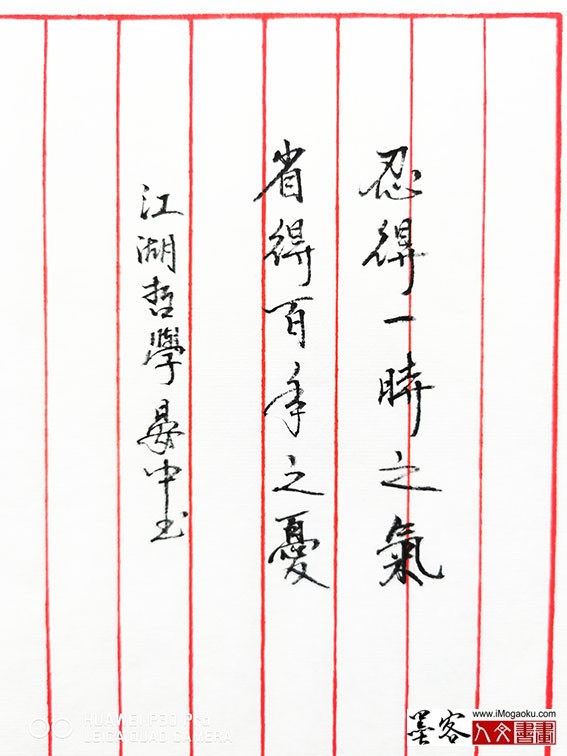 忍得一時之氣
省得百年之憂
江湖哲學 晏中书
HUAWEI P30 Pro
LEICA QUAD CAMERA
www.iMogaoku.com
墨客
人文書畫